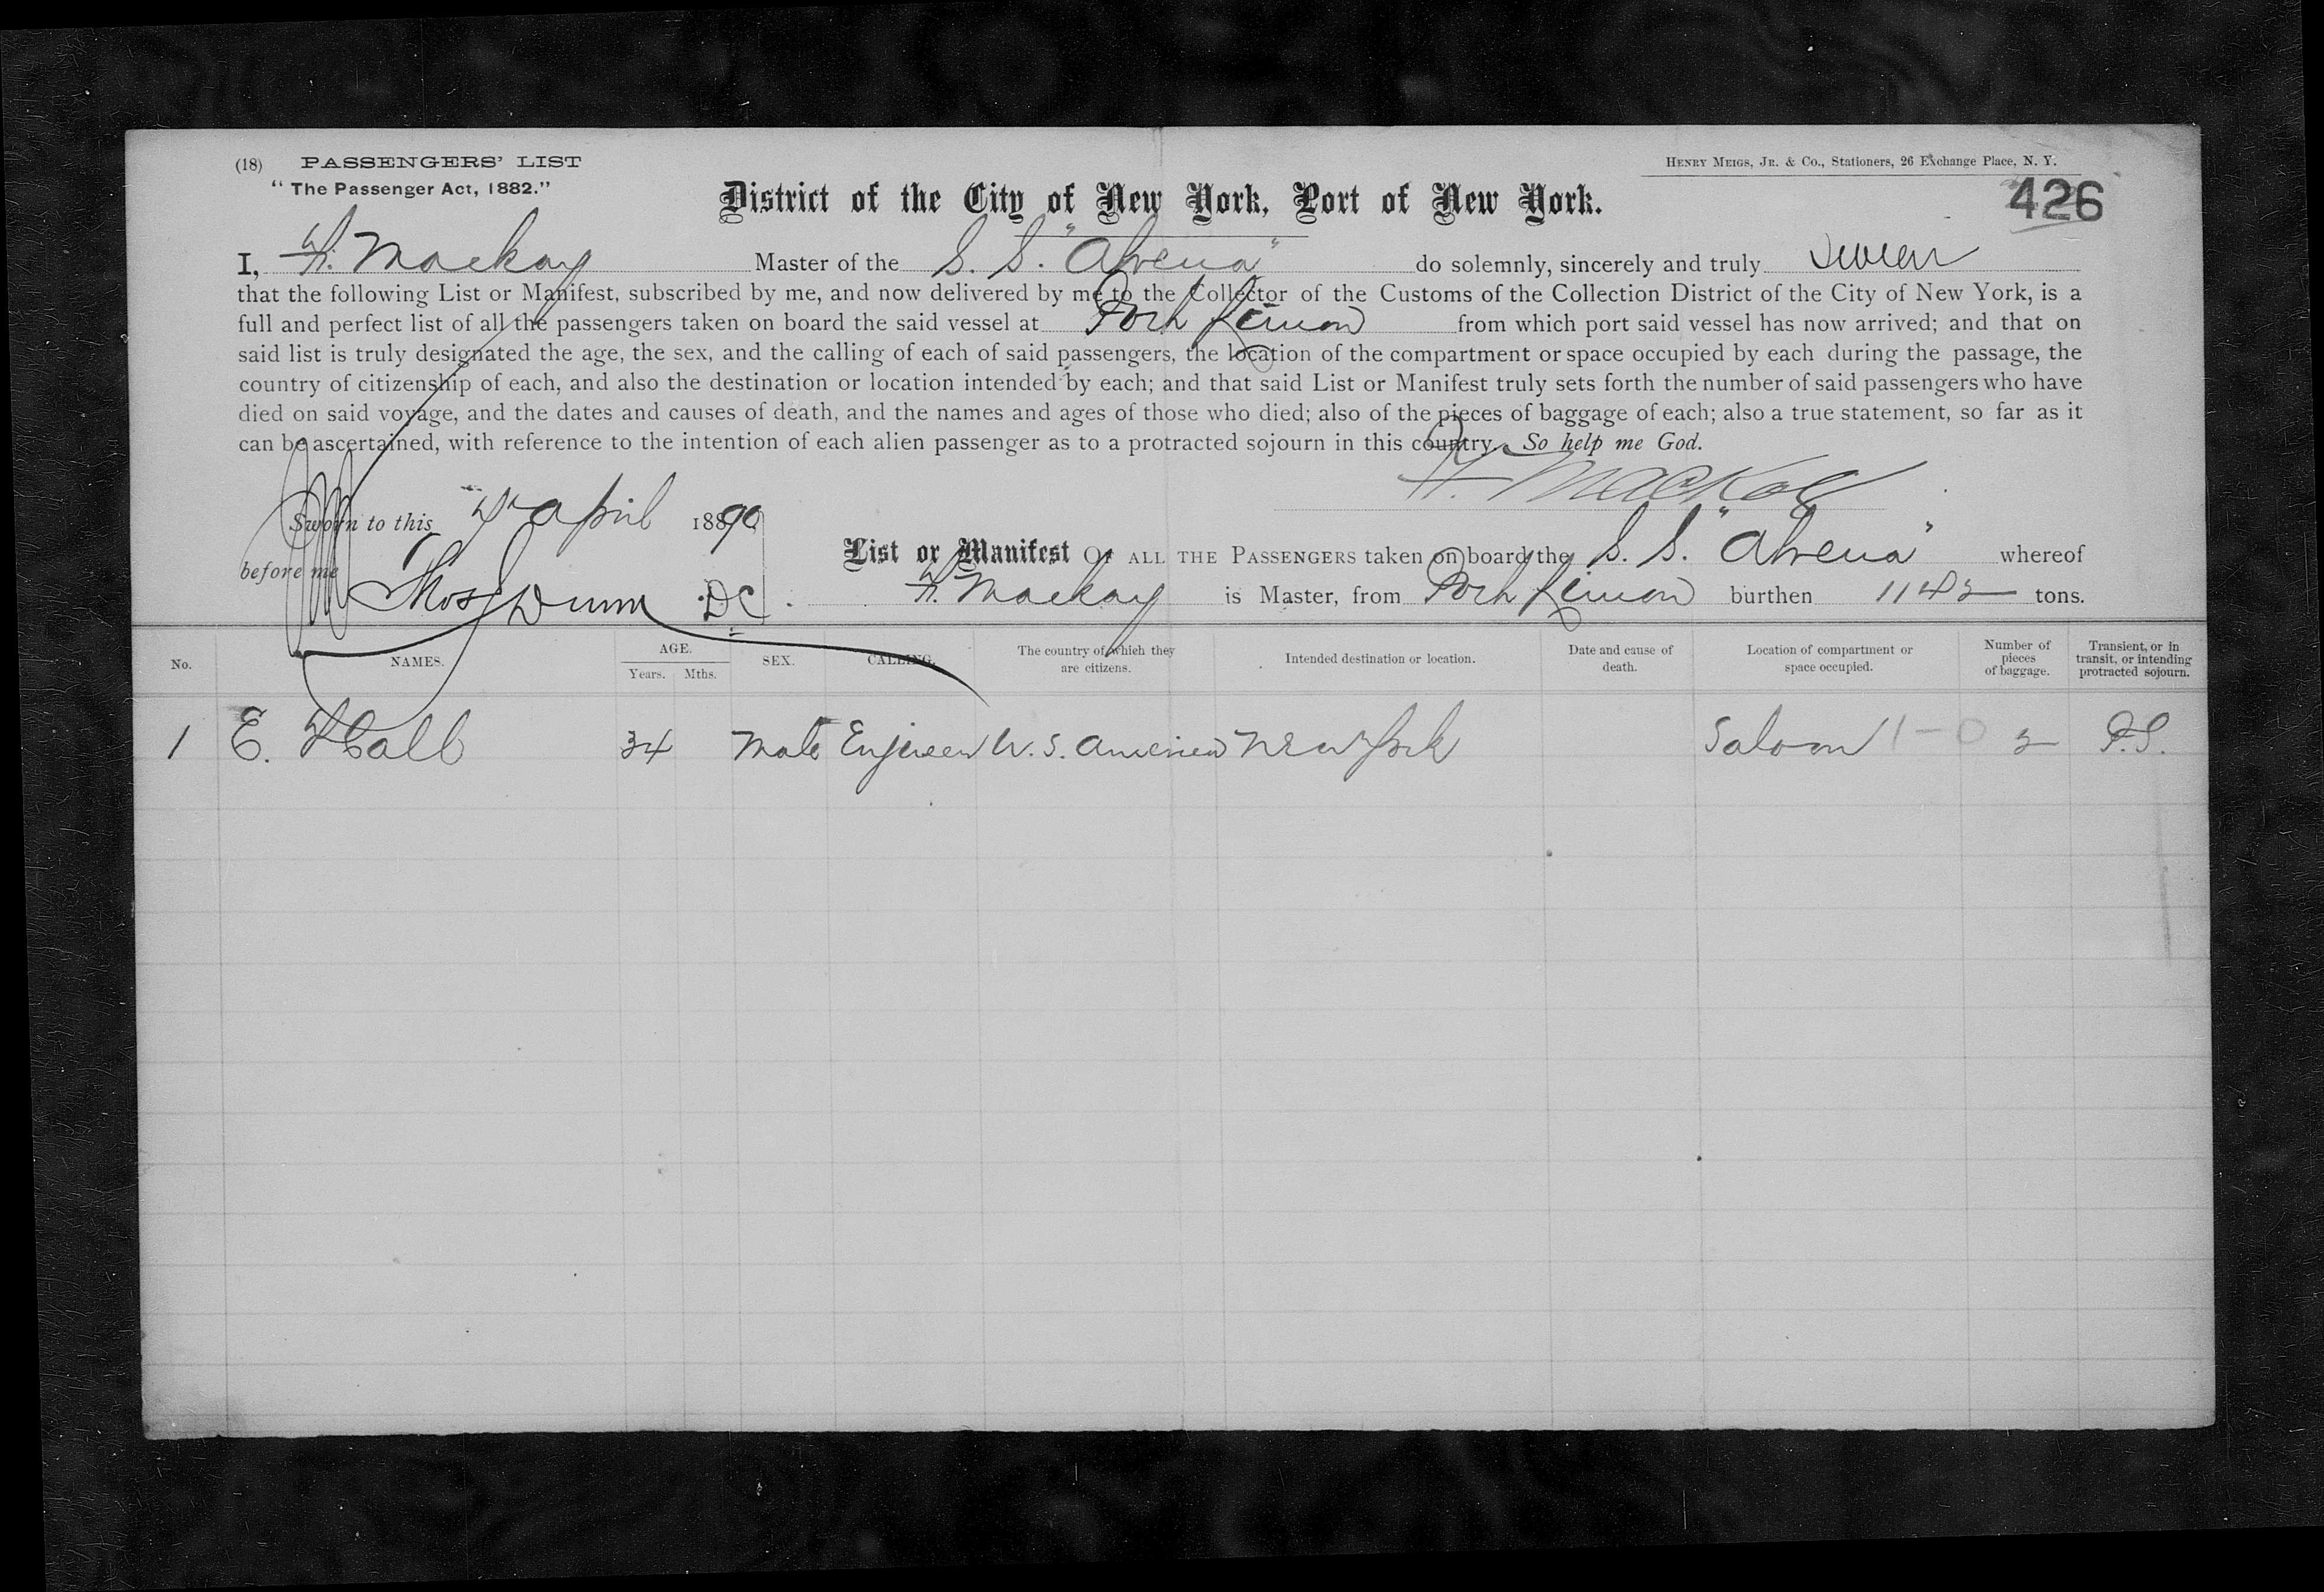 (18) PASSENGERS' LIST
"The Passenger Act, 1882."
HENRY MEIGS, JR. & CO., Stationers, 26 Exchange Place, N. Y.
District of the City of New York, Port of New York.
426
I, H. Mackay Master of the S. S. "Alvena" do solemnly, sincerely and truly swear
that the following List or Manifest, subscribed by me, and now delivered by me to the Collector of the Customs of the Collection District of the City of New York, is a
full and perfect list of all the passengers taken on board the said vessel at Port Limon from which port said vessel has now arrived; and that on
said list is truly designated the age, the sex, and the calling of each of said passengers, the location of the compartment or space occupied by each during the passage, the
country of citizenship of each, and also the destination or location intended by each; and that said List or Manifest truly sets forth the number of said passengers who have
died on said voyage, and the dates and causes of death, and the names and ages of those who died; also of the pieces of baggage of each; also a true statement, so far as it
can be ascertained, with reference to the intention of each alien passenger as to a protracted sojourn in this country. So help me God.
H. Mackay
Sworn to this April 1890
before me Thos Dunn D.C.
List or Manifest OF ALL THE PASSENGERS taken on board the S. S. "Alvena" whereof
H. Mackay is Master, from Port Limon burthen tons.
No. NAMES. AGE. Years. Mths. SEX. CALLING. The country of which they are citizens. Intended destination or location. Date and cause of death. Location of compartment or space occupied. Number of pieces of baggage. Transient, or in transit, or intending protracted sojourn.
1 E. Hall 34 Male Engineer U. S. America New York Saloon 2 P.S.